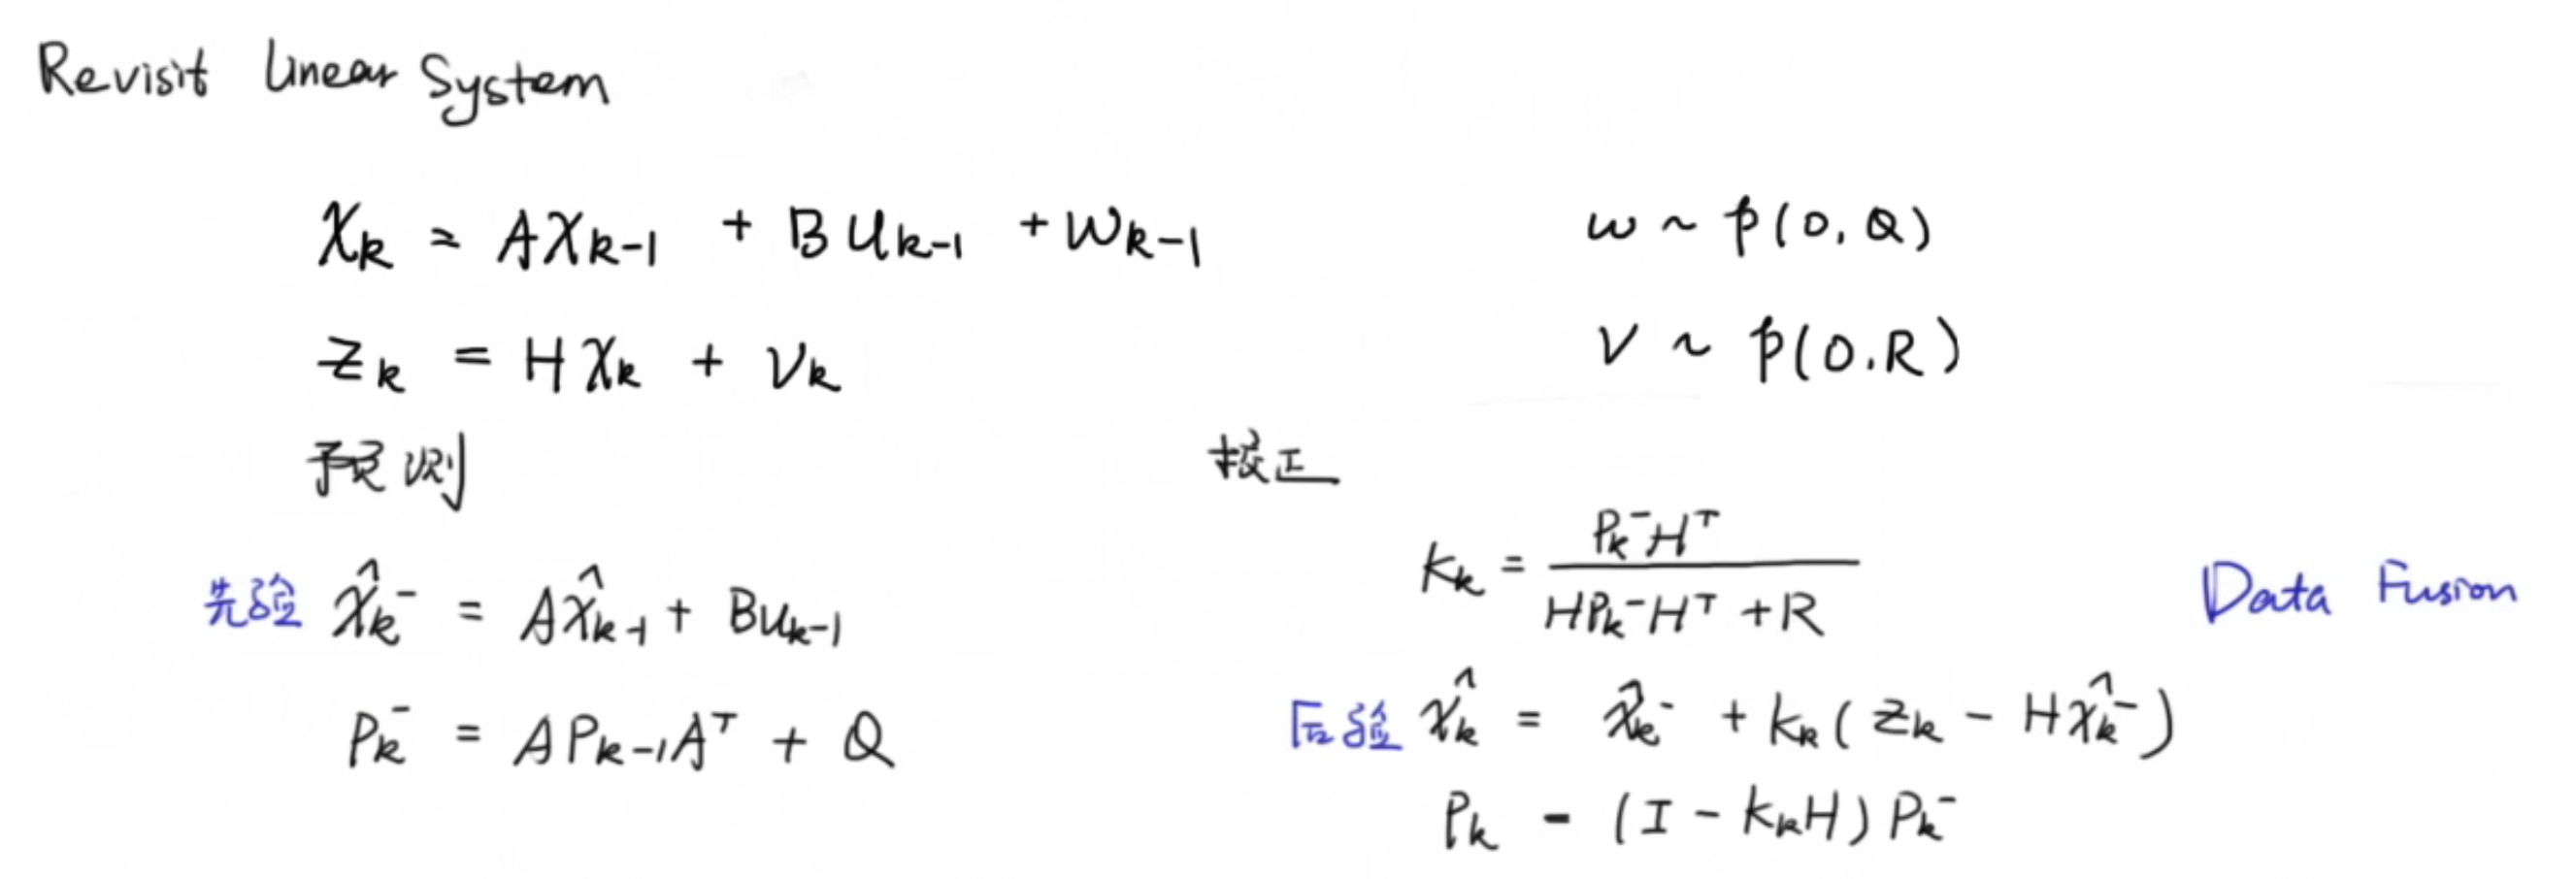 Revisit Linear System
X_k = AX_{k-1} + BU_{k-1} + W_{k-1}
w ~ p(0, Q)
Z_k = HX_k + V_k
V ~ p(0, R)
预测
校正
先验 X̂_k^- = AX̂_{k-1} + Bu_{k-1}
P_k^- = AP_{k-1}A^T + Q
K_k = P_k^-H^T / (HP_k^-H^T + R)
Data Fusion
后验 X̂_k = X̂_k^- + K_k(Z_k - HX̂_k^-)
P_k = (I - K_kH)P_k^-